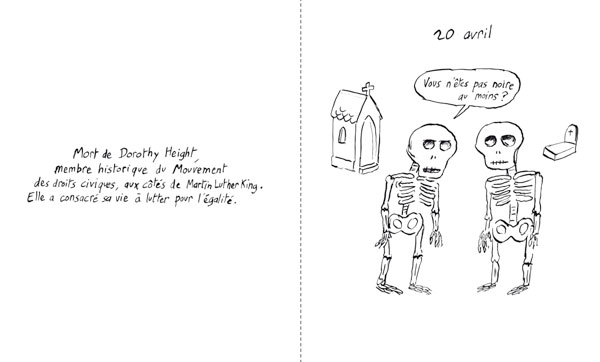 Mort de Dorothy Height,
membre historique du Mouvement
des droits civiques, aux côtés de Martin Luther King.
Elle a consacré sa vie à lutter pour l'égalité.
20 avril
Vous n'êtes pas noire
au moins ?